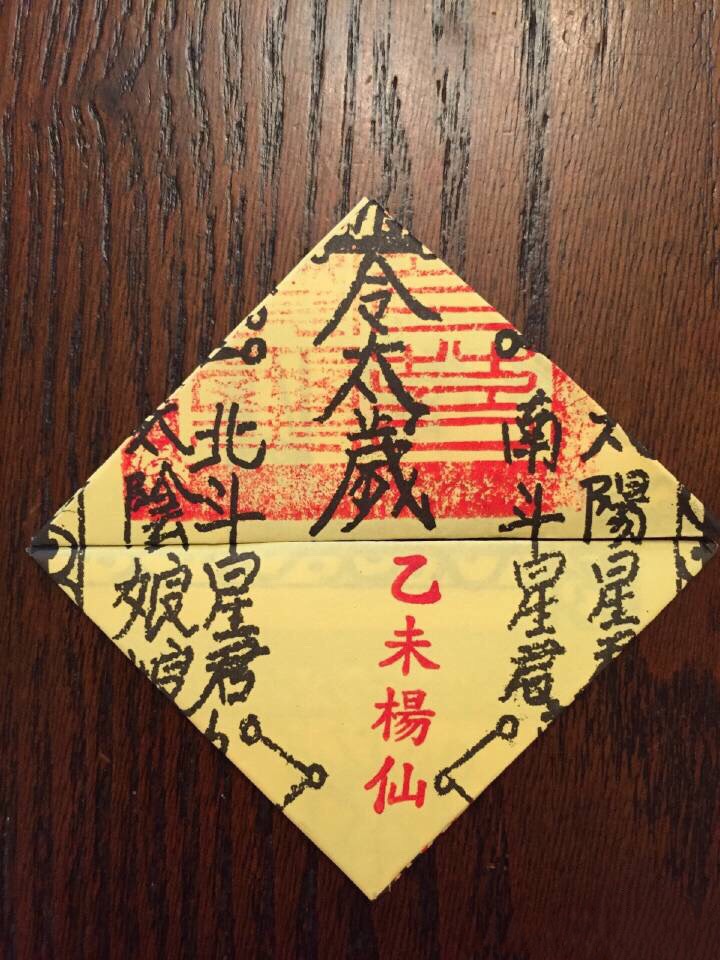 太陽星君
南斗星君
令太歲
乙未楊仙
北斗星君
太陰娘娘